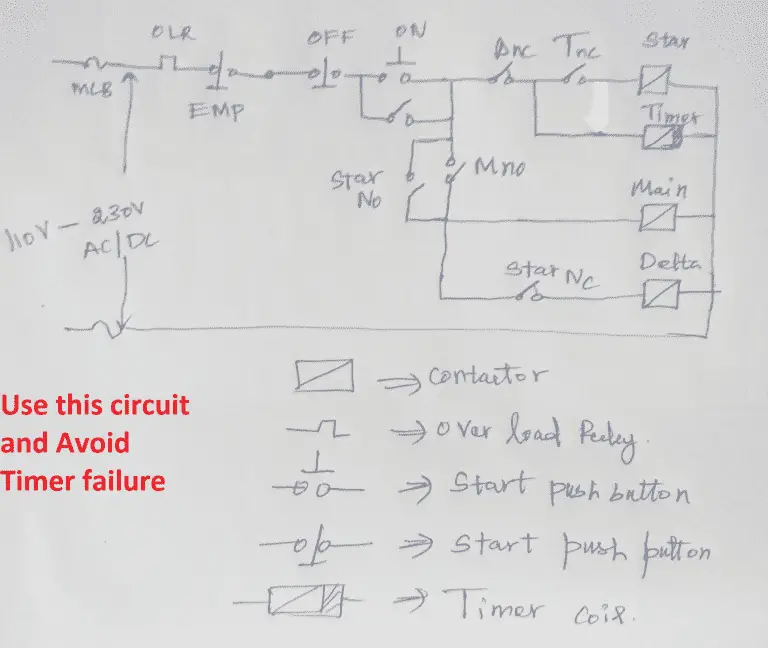 OLR
OFF
ON
Dnc
Tnc
Star
MCB
EMP
Timer
Star
No
Mno
Main
110V - 230V
AC/DC
Star Nc
Delta
Use this circuit
and Avoid
Timer failure
⇒ Contactor
⇒ Over load Reley.
⇒ Start push button
⇒ Start push button
⇒ Timer coil.